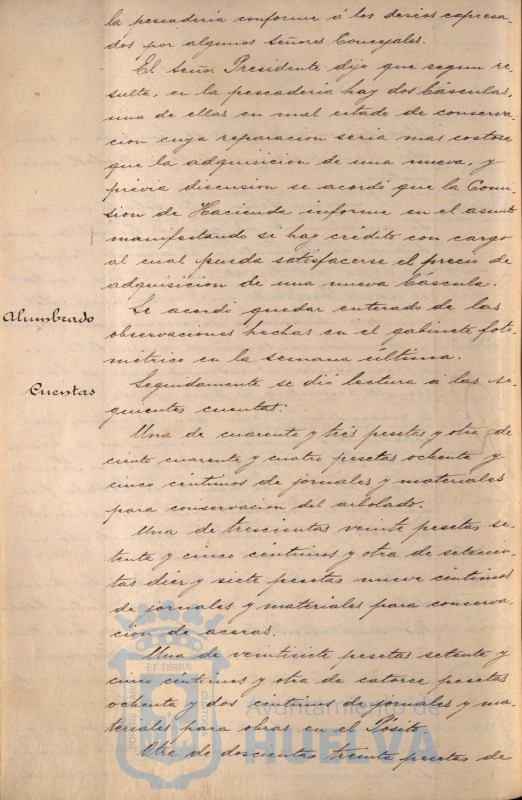 la pescaderia conforme á los deseos expresa-
dos por algunos Señores Concejales.
El Señor Presidente dijo que segun re-
sulta, en la pescaderia hay dos Cásculas,
una de ellas en mal estado de conserva-
cion cuya reparacion seria mas costosa
que la adquisicion de una nueva, y
previa discusion se acordó que la Comi-
sion de Hacienda informe en el asunto
manifestando si hay crédito con cargo
al cual pueda satisfacerse el precio de
adquisicion de una nueva Cáscula.
Alumbrado
Se acordó quedar enterado de las
observaciones hechas en el gabinete foto-
métrico en la semana última.
Cuentas
Seguidamente se dió lectura á las si-
guientes cuentas:
Una de cuarenta y trés pesetas y otra de
ciento cuarenta y cuatro pesetas ochenta y
cinco céntimos de jornales y materiales
para conservacion del arbolado.
Una de trescientas veinte pesetas se-
tenta y cinco céntimos y otra de setecien-
tas diez y siete pesetas nueve céntimos
de jornales y materiales para conserva-
cion de aceras.
Una de veintisiete pesetas setenta y
cinco céntimos y otra de catorce pesetas
ochenta y dos céntimos de jornales y ma-
teriales para obras en el Pósito.
Otra de doscientas treinta pesetas de
ET TERRÆ
Ayuntamiento de
HUELVA